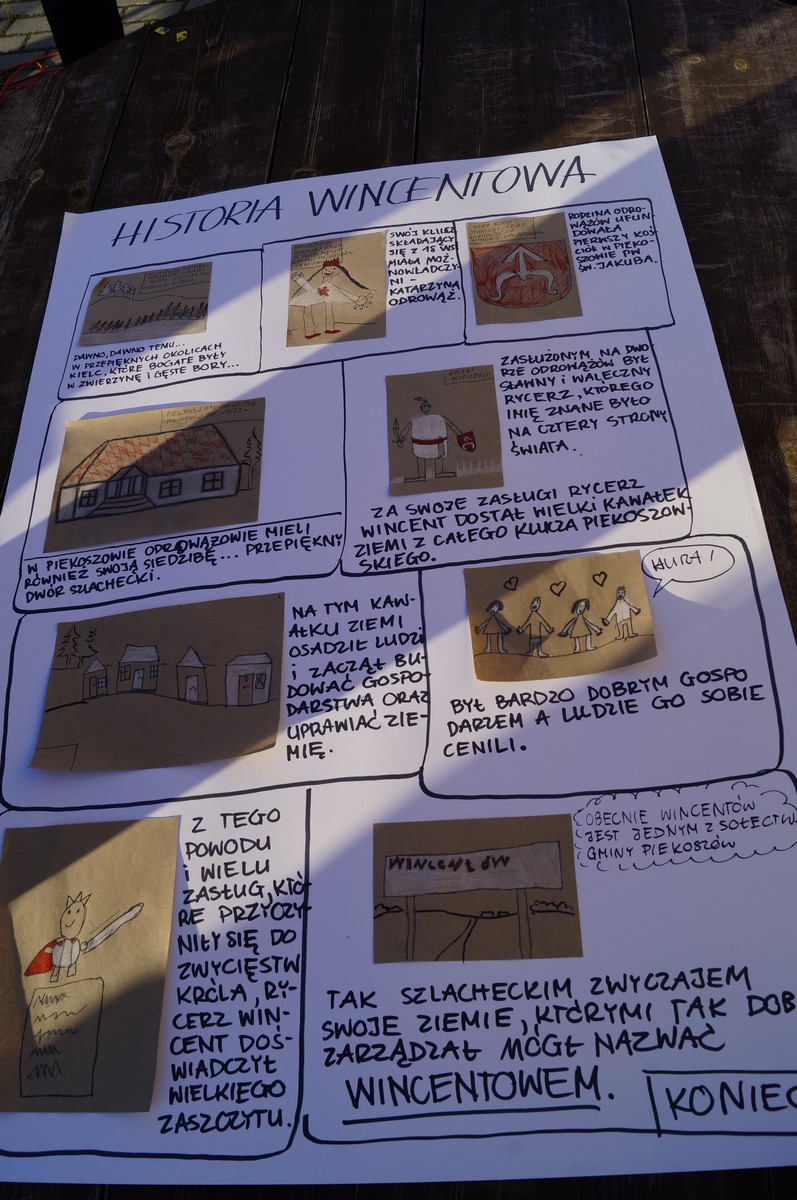 HISTORIA WINCENTOWA
DAWNO, DAWNO TEMU...
W PRZEPIĘKNYCH OKOLICACH
KIELC, KTÓRE BOGATE BYŁY
W ZWIERZYNĘ I GĘSTE BORY...
SWÓJ KLUCZ
SKŁADAJĄCY
SIĘ Z 18 WSI
MIAŁA MOŻ-
NOWŁADCZY-
NI -
KATARZYNA
ODROWĄŻ.
RODZINA ODRO-
WĄŻÓW UFUN-
DOWAŁA
PIERWSZY KOŚ-
CIÓŁ W PIEKO-
SZOWIE PW
ŚW. JAKUBA.
W PIEKOSZOWIE ODROWĄŻOWIE MIELI
RÓWNIEŻ SWOJĄ SIEDZIBĘ... PRZEPIĘKNY
DWÓR SZLACHECKI.
ZASŁUŻONYM NA DWO
RZE ODROWĄŻÓW BYŁ
SŁAWNY I WALECZNY
RYCERZ, KTÓREGO
IMIĘ ZNANE BYŁO
NA CZTERY STRONY
ŚWIATA.
ZA SWOJE ZASŁUGI RYCERZ
WINCENT DOSTAŁ WIELKI KAWAŁEK
ZIEMI Z CAŁEGO KLUCZA PIEKOSZOW-
SKIEGO.
NA TYM KAW-
AŁKU ZIEMI
OSADZIŁ LUDZI
I ZACZĄŁ BU-
DOWAĆ GOSPO-
DARSTWA ORAZ
UPRAWIAĆ ZIE-
MIĘ.
HURA!
BYŁ BARDZO DOBRYM GOSPO
DARZEM A LUDZIE GO SOBIE
CENILI.
Z TEGO
POWODU
I WIELU
ZASŁUG, KTÓ-
RE PRZYCZY-
NIŁY SIĘ DO
ZWYCIĘSTW
KRÓLA, RY-
CERZ WIN-
CENT DOŚ-
WIADCZYŁ
WIELKIEGO
ZASZCZYTU.
WINCENTÓW
OBECNIE WINCENTÓW
JEST JEDNYM Z SOŁECTW
GMINY PIEKOSZÓW
TAK SZLACHECKIM ZWYCZAJEM
SWOJE ZIEMIE, KTÓRYMI TAK DOB
ZARZĄDZAŁ MÓGŁ NAZWAĆ
WINCENTOWEM.
KONIEC